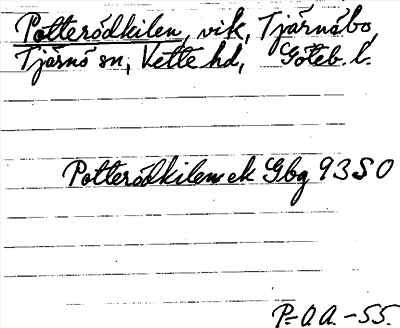 Potterödkilen, vik, Tjärnöbo,
Tjärnö sn, Vette hd, Göteb. l.
Potterödkilen ek Gbg 93 SO
P.-O.A.-55.